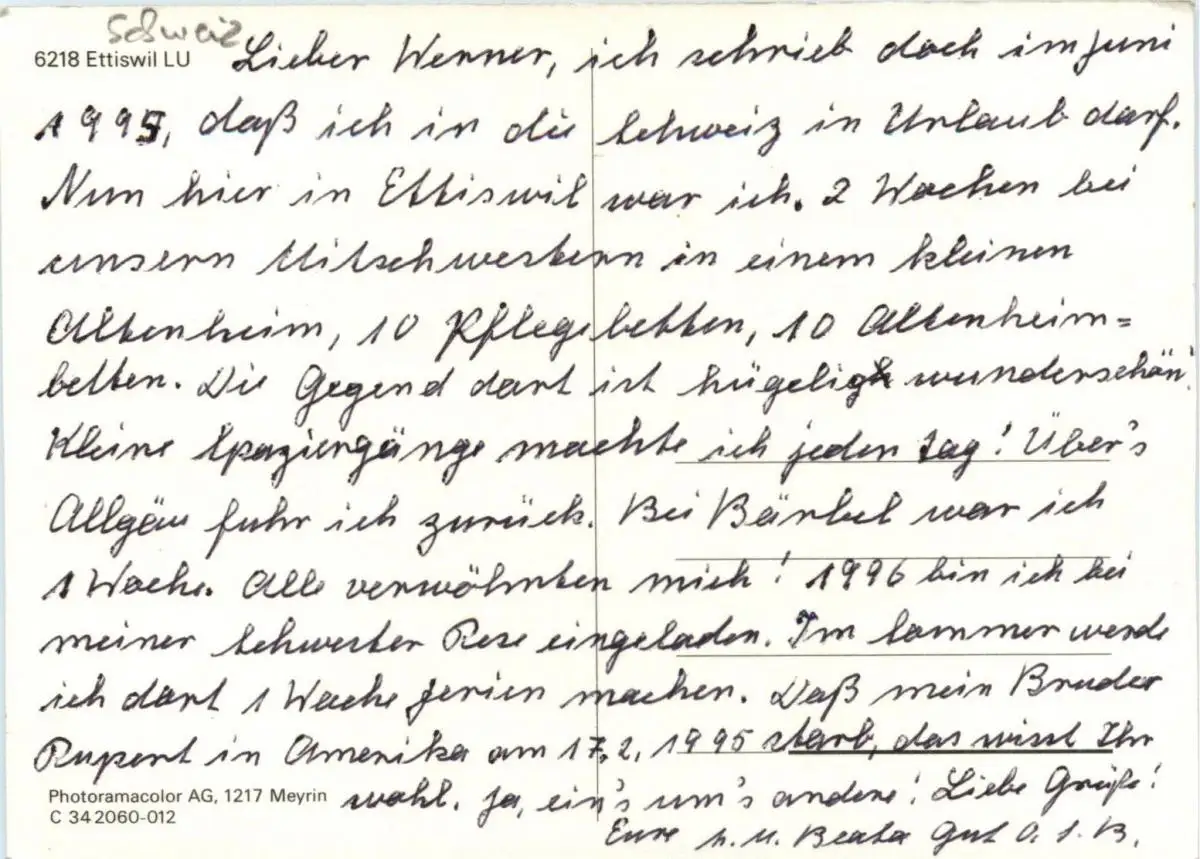 Schweiz
6218 Ettiswil LU
Lieber Werner, ich schrieb doch im Juni
1995, daß ich in die Schweiz in Urlaub darf.
Nun hier in Ettiswil war ich. 2 Wochen bei
unsern Mitschwestern in einem kleinen
Altenheim, 10 Pflegebetten, 10 Altenheim=
betten. Die Gegend dort ist hügelig wunderschön!
Kleine Spaziergänge machte ich jeden Tag! Über's
Allgäu fuhr ich zurück. Bei Bärbel war ich
1 Woche. Alle verwöhnten mich! 1996 bin ich bei
meiner Schwester Rese eingeladen. Im Sommer werde
ich dort 1 Woche Ferien machen. Daß mein Bruder
Rupert in Amerika am 17.2.1995 starb, das wisst Ihr
wohl. Ja, ein's um's andere! Liebe Grüße!
Eure S. M. Beata Gut O. S. B.
Photoramacolor AG, 1217 Meyrin
C 34 2060-012